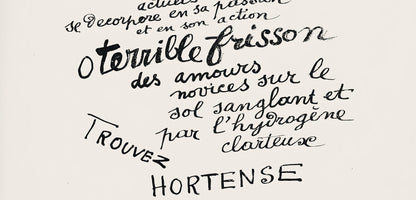 actuels
se décorpore en sa passion
et en son action
O terrible frisson
des amours
novices sur le
sol sanglant et
par l'hydrogène
clarteux
TROUVEZ
HORTENSE